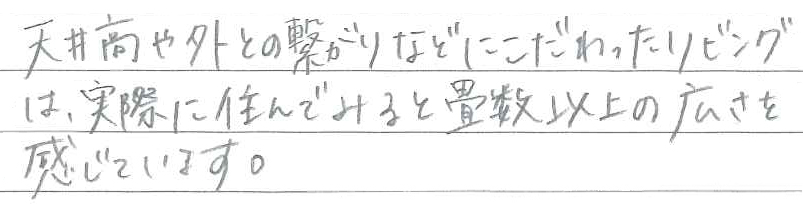 天井高や外との繋がりなどにこだわったリビング
は、実際に住んでみると畳数以上の広さを
感じています。